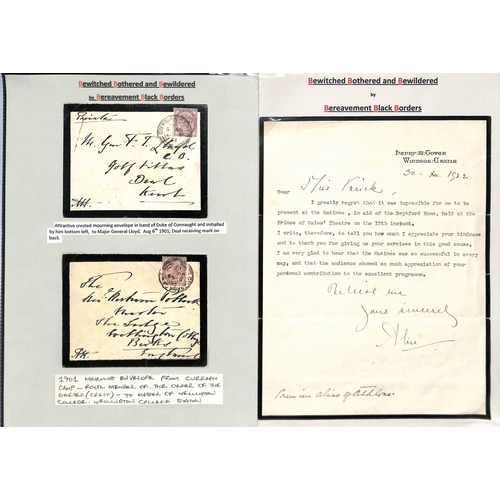 Bewitched Bothered and Bewildered
by Bereavement Black Borders
Private
Deal
Kent
Attractive crested mourning envelope in hand of Duke of Connaught and initialled
by him bottom left, to Major General Lloyd. Aug 6th 1901, Deal receiving mark on
back.
The
The Lodge
Wellington College
Berks
England
1901 MOURNING ENVELOPE FROM CURRAGH
CAMP - ROYAL MEMBER OF THE ORDER OF THE
GARTER (CREST) - TO MASTER OF WELLINGTON
COLLEGE. WELLINGTON COLLEGE STATION
Bewitched Bothered and Bewildered
by
Bereavement Black Borders
Henry III Tower
Windsor Castle
1922
Dear Miss
I greatly regret that it was impossible for me to be
present at the Matinée, in aid of the Deptford Fund, held at the
Prince of Wales' Theatre on the 12th instant.
I write, therefore, to tell you how much I appreciate your kindness
and to thank you for giving me your services in this good cause.
I am very glad to hear that the Matinée was so successful in every
way, and that the audience showed so much appreciation of your
personal contribution to the excellent programme.
Believe me
Yours sincerely
Alice
Princess Alice of Athlone.